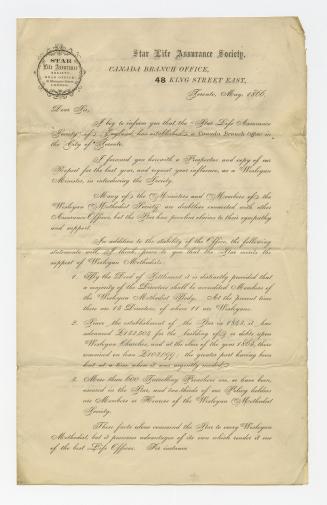 STAR
Life Assurance
SOCIETY.
HEAD OFFICE
48 Moorgate Street
LONDON.
Star Life Assurance Society.
CANADA BRANCH OFFICE,
48 KING STREET EAST,
Toronto, May, 1866.
Dear Sir,
I beg to inform you that the "Star Life Assurance
Society" of England, has established a Canada Branch Office in
the City of Toronto.
I forward you herewith a Prospectus and copy of our
Report for the last year, and request your influence, as a Wesleyan
Minister, in introducing the Society.
Many of the Ministers and Members of the
Wesleyan Methodist Society, are doubtless connected with other
Assurance Offices, but the Star has peculiar claims to their sympathy
and support.
In addition to the stability of the Office, the following
statements will, I think, prove to you that the Star merits the
support of Wesleyan Methodists:
1. By the Deed of Settlement it is distinctly provided that
a majority of the Directors shall be accredited Members of
the Wesleyan Methodist Body. At the present time
there are 15 Directors, of whom 11 are Wesleyans.
2. Since the establishment of the Star in 1843, it has
advanced for the building of, or debts upon
Wesleyan Churches, and at the close of the year 1865, there
remained on loan the greater part having been
lent at a time when it was urgently needed.
3. More than 600 Travelling Preachers are, or have been,
insured in the Star, and two thirds of our Policy holders
are Members or Hearers of the Wesleyan Methodist
Society.
These facts alone commend the Star to every Wesleyan
Methodist, but it possesses advantages of its own which render it one
of the best Life Offices. For instance